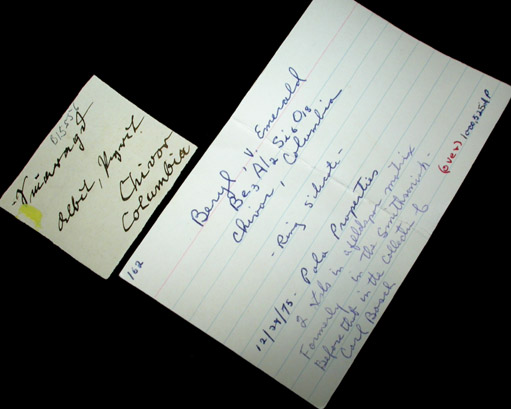 B13556
Smaragd
albit, Pyrit
Chivor
Columbia
Beryl, V. Emerald
Be3Al2Si6O18
Chivor, Columbia
- Ring silicate -
12/24/75. Pala Properties
2 Xtls in a feldspar matrix
Formerly in the Smithsonian -
before that in the collection of
Carl Bosch
162
(over) 1000.525AP